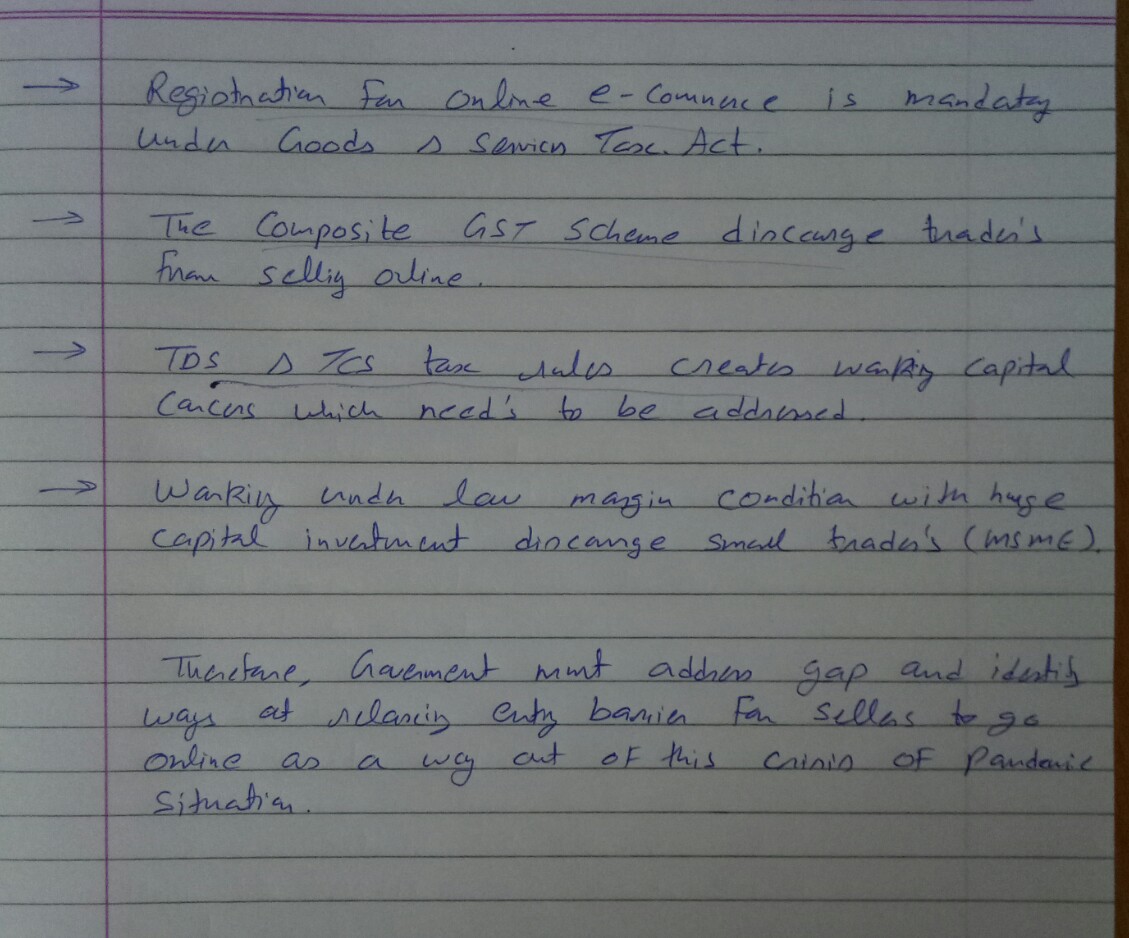 → Registration for online e-commerce is mandatory
under Goods & Services Tax Act.
→ The Composite GST Scheme discourage trader's
from selling online.
→ TDS & TCS tax rules creates working capital
concerns which need's to be addressed.
→ Working under low margin condition with huge
capital investment discourage small trader's (MSME).
Therefore, Government must address gap and identify
ways at relaxing entry barrier for sellers to go
online as a way out of this crisis of pandemic
situation.